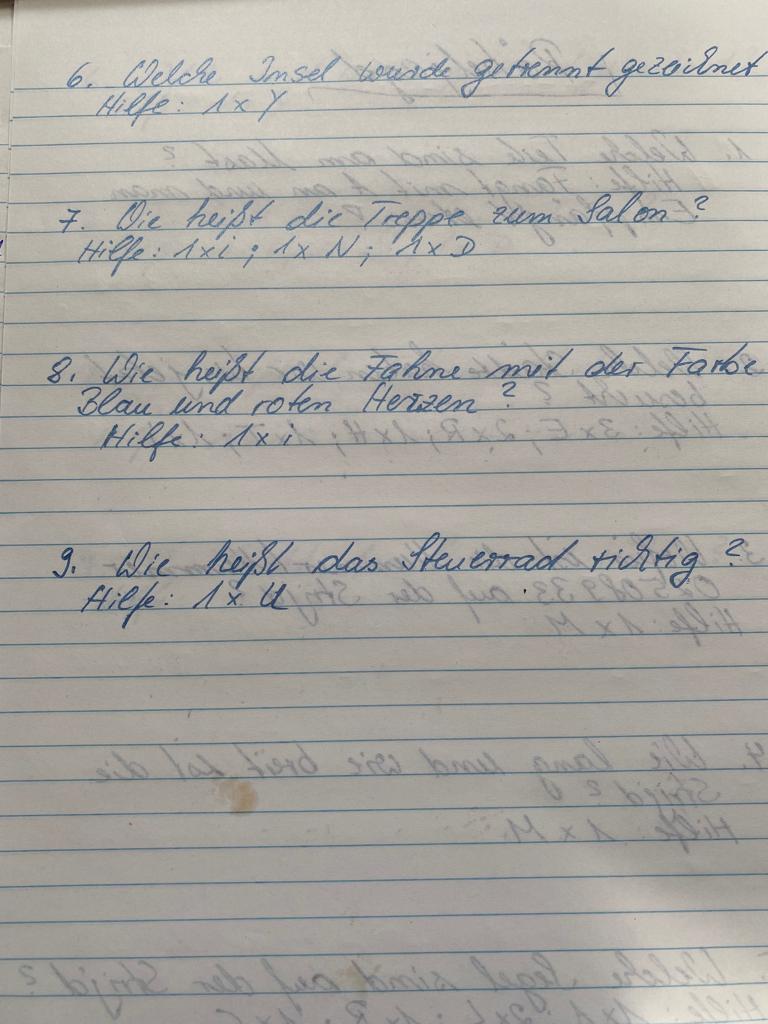 6. Welche Insel wurde getrennt gezeichnet
Hilfe: 1x Y
7. Wie heißt die Treppe zum Salon?
Hilfe: 1xi; 1x N; 1x D
8. Wie heißt die Fahne mit der Farbe
Blau und roten Herzen?
Hilfe: 1x i
9. Wie heißt das Steuerrad richtig?
Hilfe: 1x U